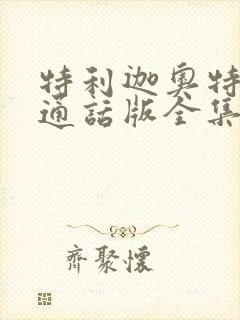 特利迦奥特
通話版全集
齊聚懷